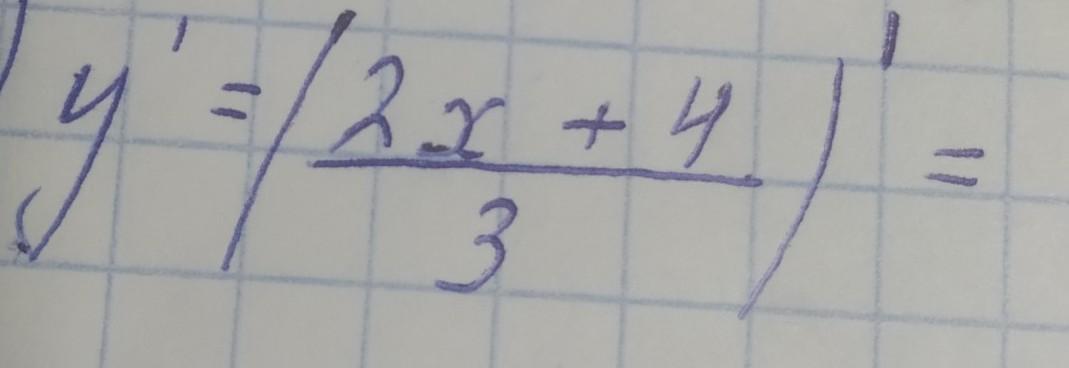 y' = (2x + 4 / 3)' =